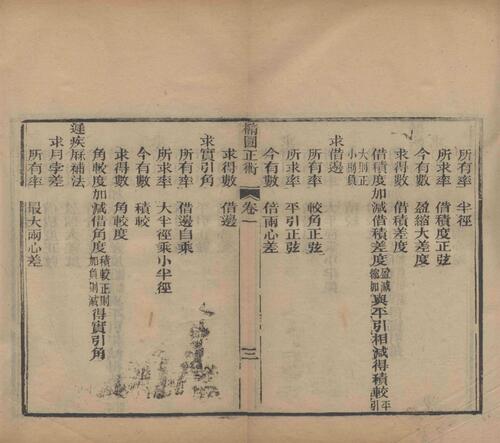 所有率 半徑
所求率 借積度正弦
今有數 盈縮大差度
求得數 借積差度
借積度加減借積差度盈減縮加與平引相減得積較平引
大則正
小則負
求借邊
所有率 半徑
所求率 較角正弦
所求率 平引正弦
今有數 倍兩心差
橢圜正術 卷一 三
求得數 借邊
求實引角
所有率 借邊自乘
所求率 大半徑乘小半徑
今有數 積較
求得數 角較度
角較度加減借角度積較正則加負則減得實引角
遲疾厤補法
求月孛差
所有率 最大兩心差